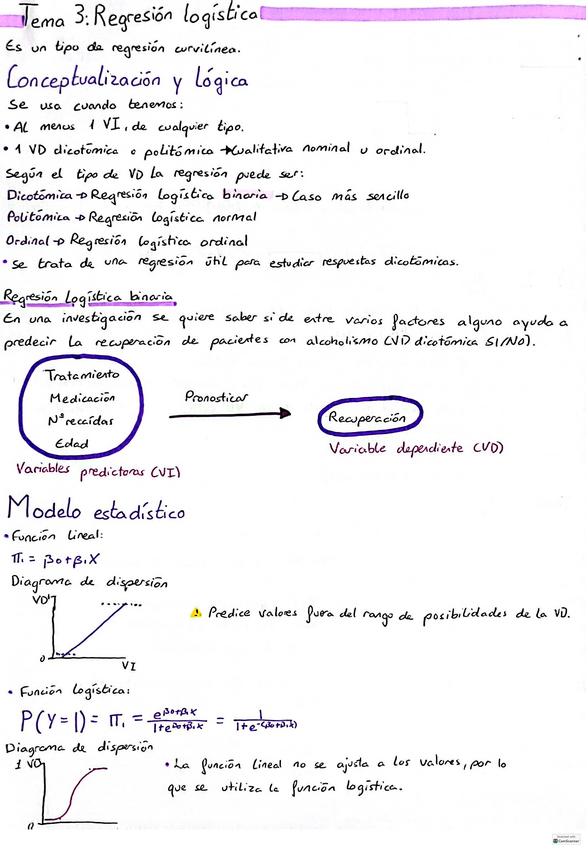 Tema 3: Regresión logística
Es un tipo de regresión curvilínea.
Conceptualización y lógica
Se usa cuando tenemos:
• Al menos 1 VI, de cualquier tipo.
• 1 VD dicotómica o politómica → Cualitativa nominal u ordinal.
Según el tipo de VD la regresión puede ser:
Dicotómica → Regresión logística binaria → Caso más sencillo
Politómica → Regresión logística normal
Ordinal → Regresión logística ordinal
• Se trata de una regresión útil para estudiar respuestas dicotómicas.
Regresión logística binaria
En una investigación se quiere saber si de entre varios factores alguno ayuda a
predecir la recuperación de pacientes con alcoholismo (VD dicotómica SI/NO).
Tratamiento
Medicación
Nº recaídas
Edad
Pronosticar
Recuperación
Variables predictoras (VI)
Variable dependiente (VD)
Modelo estadístico
• Función lineal:
π₁ = β0+β₁X
Diagrama de dispersión
VD 1
0
VI
⚠ Predice valores fuera del rango de posibilidades de la VD.
• Función logística:
P(Y=1) = π₁ = e^(β0+β₁X) / 1+e^(β0+β₁X) = 1 / 1+e^-(β0+β₁X)
Diagrama de dispersión
1 VD
0
• La función lineal no se ajusta a los valores, por lo
que se utiliza la función logística.
CamScanner